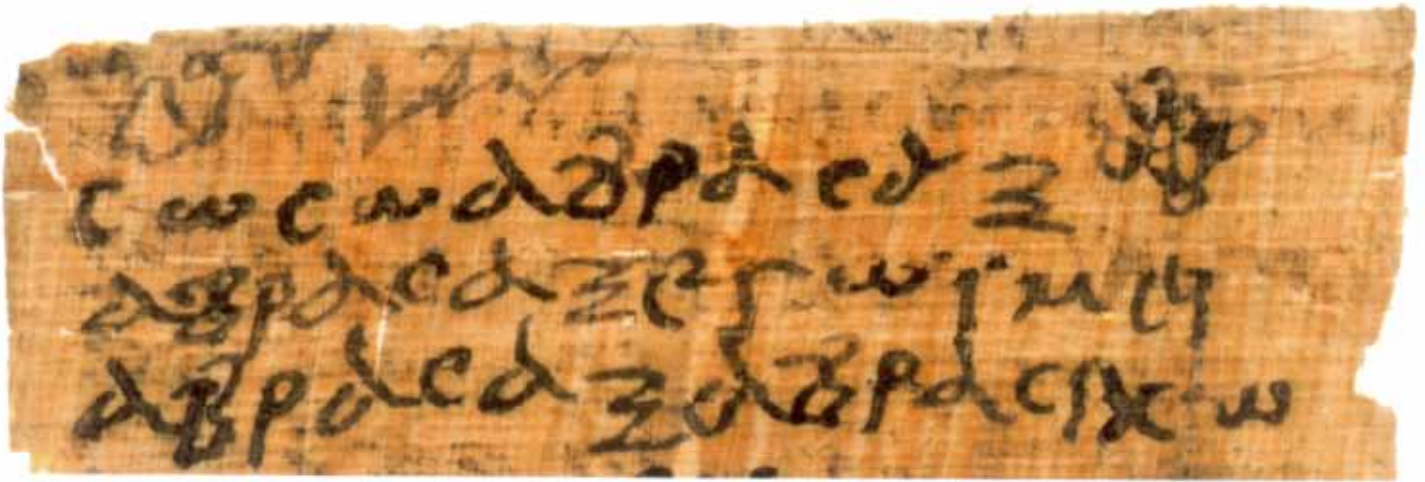 ϲωϲωαβραϲαξ
αβραϲαξεγωιμη
αβραϲαξαβραϲιχω